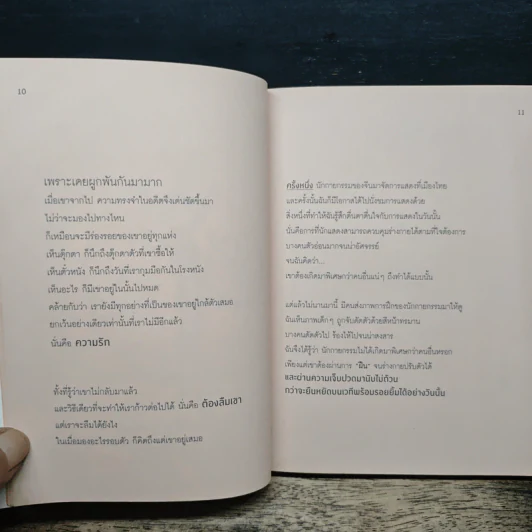 10
เพราะเคยผูกพันกันมามาก
เมื่อเขาจากไป ความทรงจำในอดีตจึงเด่นชัดขึ้นมา
ไม่ว่าจะมองไปทางไหน
ก็เหมือนจะมีร่องรอยของเขาอยู่ทุกแห่ง
เห็นตุ๊กตา ก็นึกถึงตุ๊กตาตัวที่เขาซื้อให้
เห็นตั๋วหนัง ก็นึกถึงวันที่เรากุมมือกันในโรงหนัง
เห็นอะไร ก็มีเขาอยู่ในนั้นไปหมด
คล้ายกับว่า เรายังมีทุกอย่างที่เป็นของเขาอยู่ใกล้ตัวเสมอ
ยกเว้นอย่างเดียวเท่านั้นที่เราไม่มีอีกแล้ว
นั่นคือ ความรัก
ทั้งที่รู้ว่าเขาไม่กลับมาแล้ว
และวิธีเดียวที่จะทำให้เราก้าวต่อไปได้ นั่นคือ ต้องลืมเขา
แต่เราจะลืมได้ยังไง
ในเมื่อมองอะไรรอบตัว ก็คิดถึงแต่เขาอยู่เสมอ
11
ครั้งหนึ่ง นักกายกรรมของจีนมาจัดการแสดงที่เมืองไทย
และครั้งนั้นฉันก็มีโอกาสได้ไปนั่งชมการแสดงด้วย
สิ่งหนึ่งที่ทำให้ฉันรู้สึกตื่นตาตื่นใจกับการแสดงในวันนั้น
นั่นคือการที่นักแสดงสามารถควบคุมร่างกายได้ตามที่ใจต้องการ
บางคนตัวอ่อนมากจนน่าอัศจรรย์
จนฉันคิดว่า...
เขาต้องเกิดมาพิเศษกว่าคนอื่นแน่ๆ ถึงทำได้แบบนั้น
แต่แล้วไม่นานมานี้ มีคนส่งภาพการฝึกของนักกายกรรมมาให้ดู
ฉันเห็นภาพเด็กๆ ถูกจับดัดตัวด้วยสีหน้าทรมาน
บางคนดัดตัวไป ร้องไห้ไปจนน่าสงสาร
ฉันจึงได้รู้ว่า นักกายกรรมไม่ได้เกิดมาพิเศษกว่าคนอื่นหรอก
เพียงแต่เขาต้องผ่านการ "ฝืน" จนร่างกายปรับตัวได้
และผ่านความเจ็บปวดมานับไม่ถ้วน
กว่าจะยืนหยัดบนเวทีพร้อมรอยยิ้มได้อย่างวันนั้น